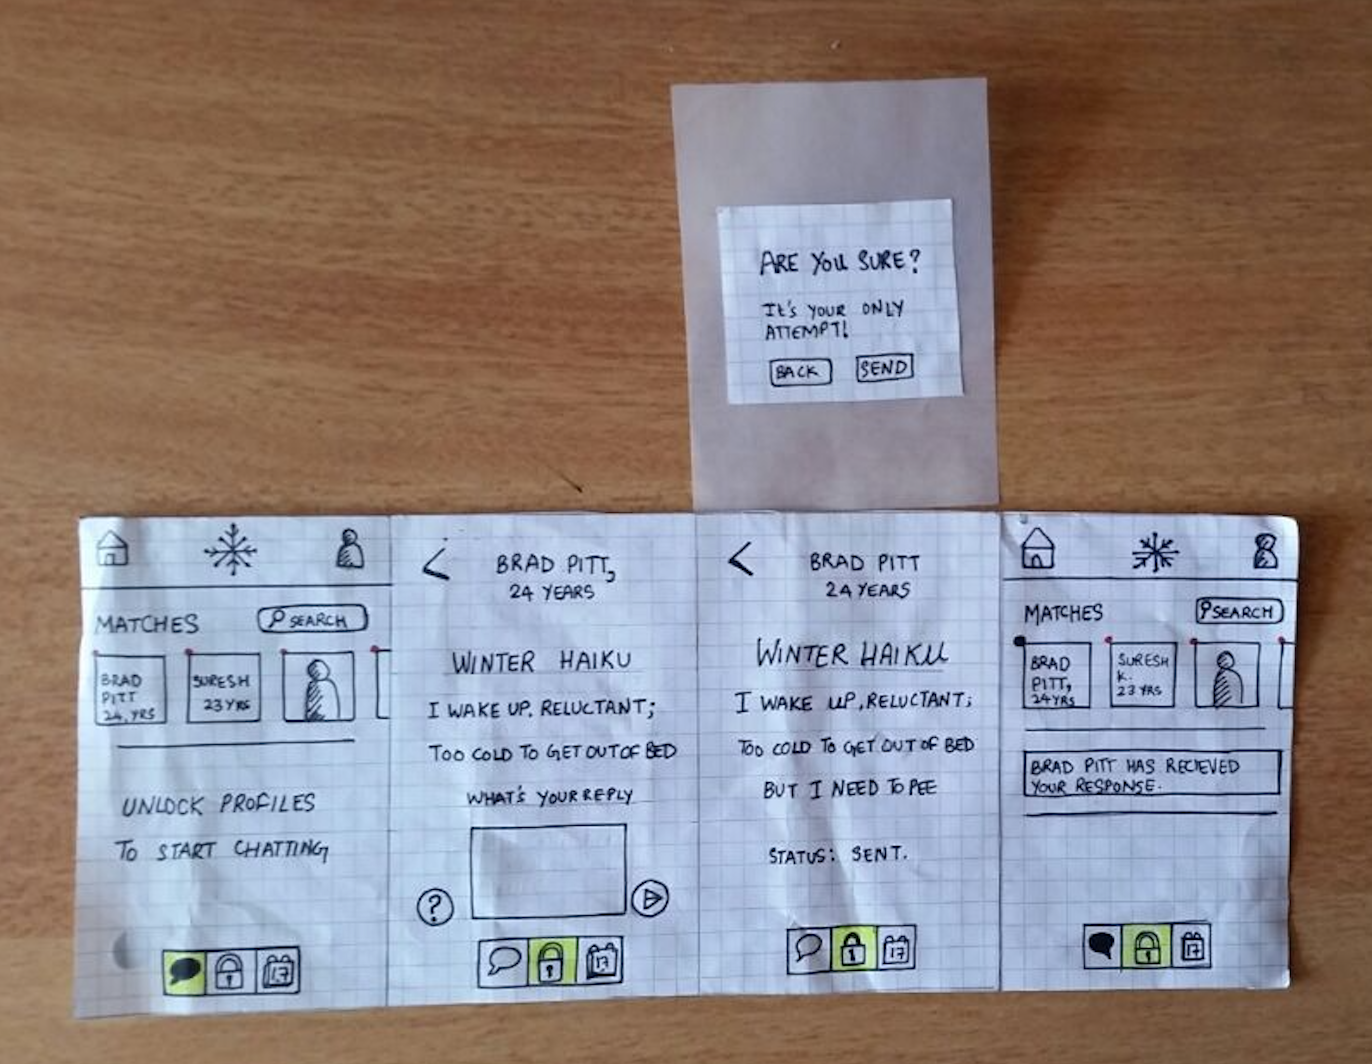 ARE YOU SURE?
IT'S YOUR ONLY
ATTEMPT!
BACK
SEND
MATCHES
SEARCH
BRAD
PITT
24, YRS
SURESH
23 YRS
UNLOCK PROFILES
TO START CHATTING
17
BRAD PITT,
24 YEARS
WINTER HAIKU
I WAKE UP, RELUCTANT;
TOO COLD TO GET OUT OF BED
WHAT'S YOUR REPLY
?
17
BRAD PITT
24 YEARS
WINTER HAIKU
I WAKE UP, RELUCTANT;
TOO COLD TO GET OUT OF BED
BUT I NEED TO PEE
STATUS: SENT.
17
MATCHES
SEARCH
BRAD
PITT,
24 YRS
SURESH
K.
23 YRS
BRAD PITT HAS RECIEVED
YOUR RESPONSE.
17